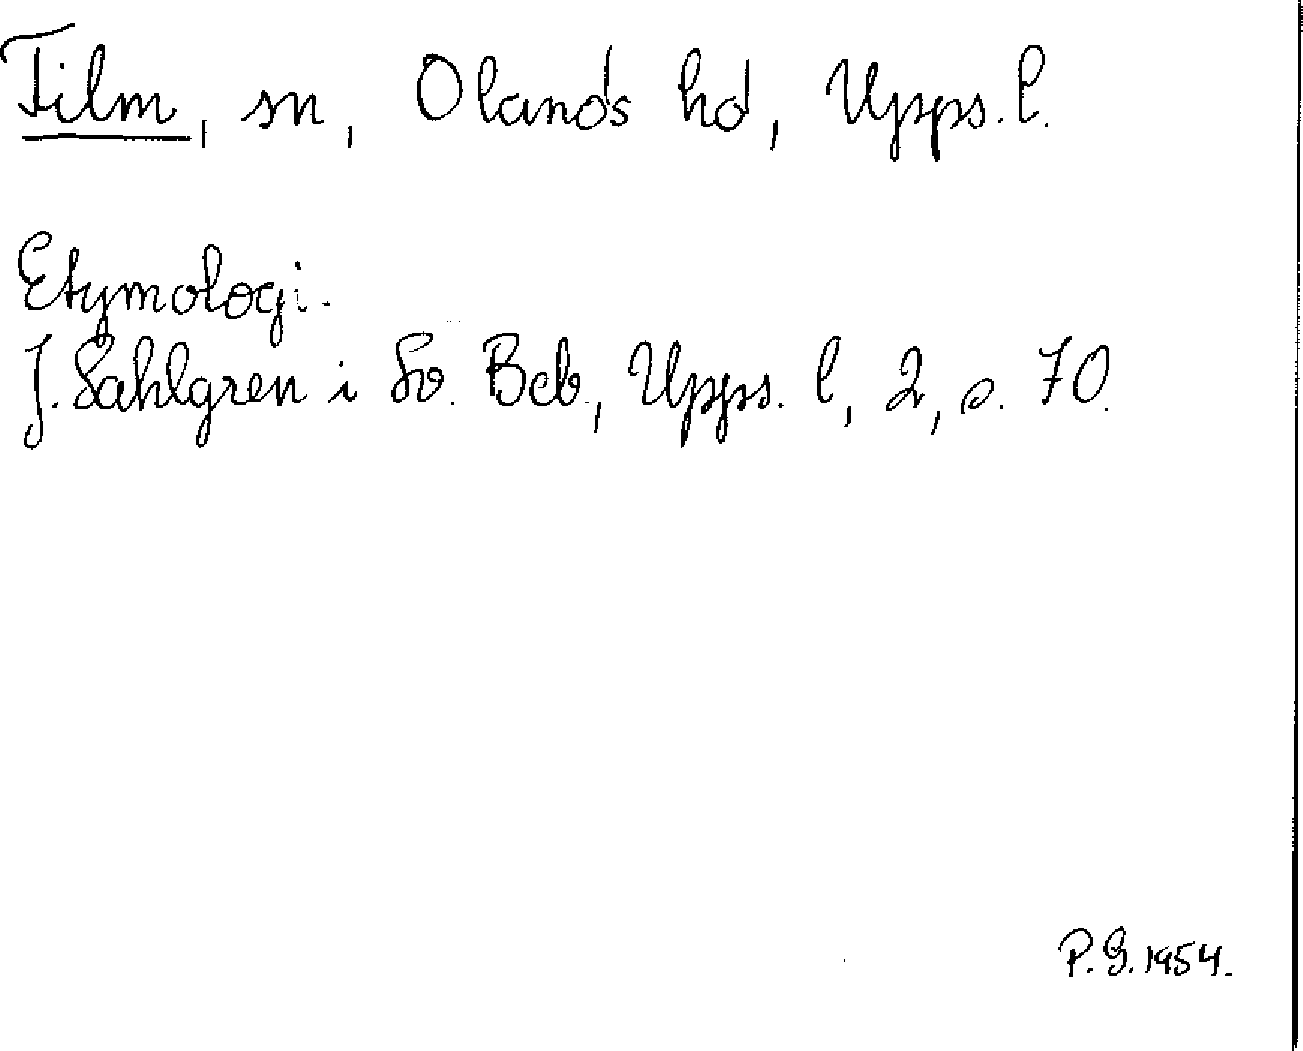 Film, sn, Olands hd, Upps. l.
Etymologi.
J. Sahlgren i Sv. Beb., Upps. l, 2, s. 70.
P. G. 1954.